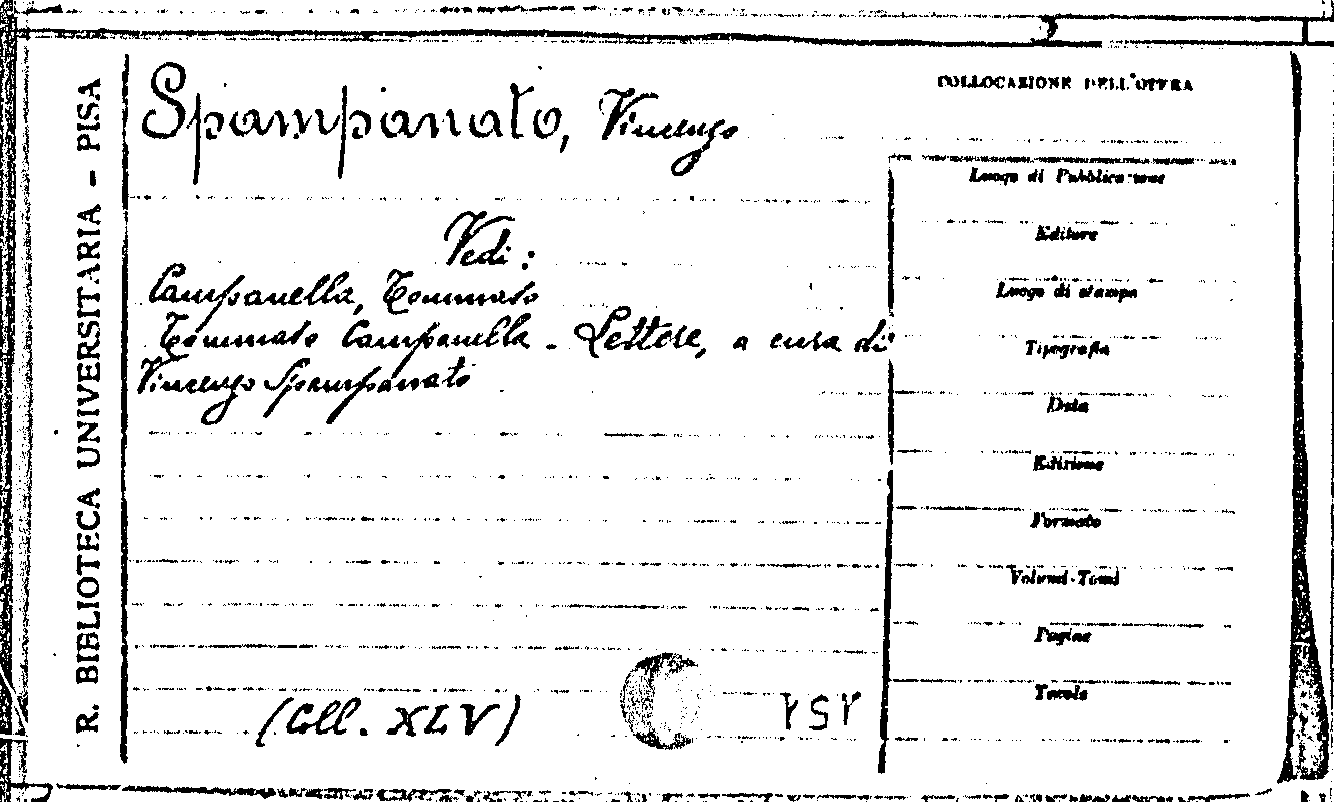 R. BIBLIOTECA UNIVERSITARIA - PISA
Spampanato, Vincenzo
Vedi:
Campanella, Tommaso
Tommaso Campanella - Lettere, a cura di
Vincenzo Spampanato
(Coll. XLV)
COLLOCAZIONE DELL'OPERA
Luogo di Pubblicazione
Editore
Luogo di stampa
Tipografia
Data
Edizione
Formato
Volumi-Tomi
Pagine
Tavole